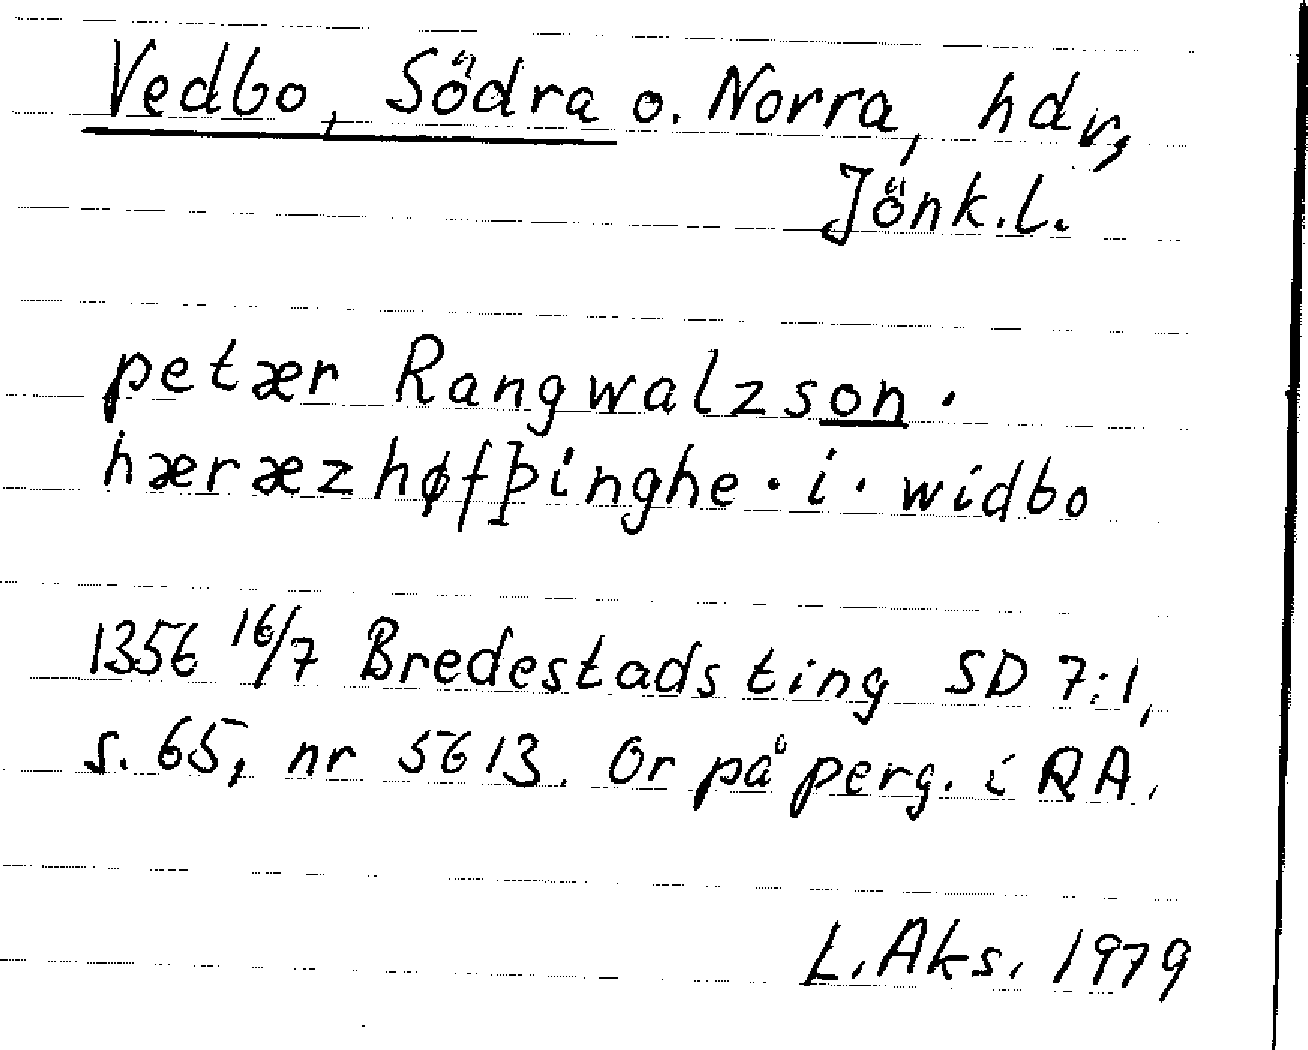 Vedbo, Södra o. Norra, hdr,
Jönk.l.
petær Rangwalzson ·
hæræzhøfþinghe · i · widbo
1356 16/7 Bredestads ting SD 7:1,
s. 65, nr 5613. Or på perg. i RA.
L. Aks. 1979